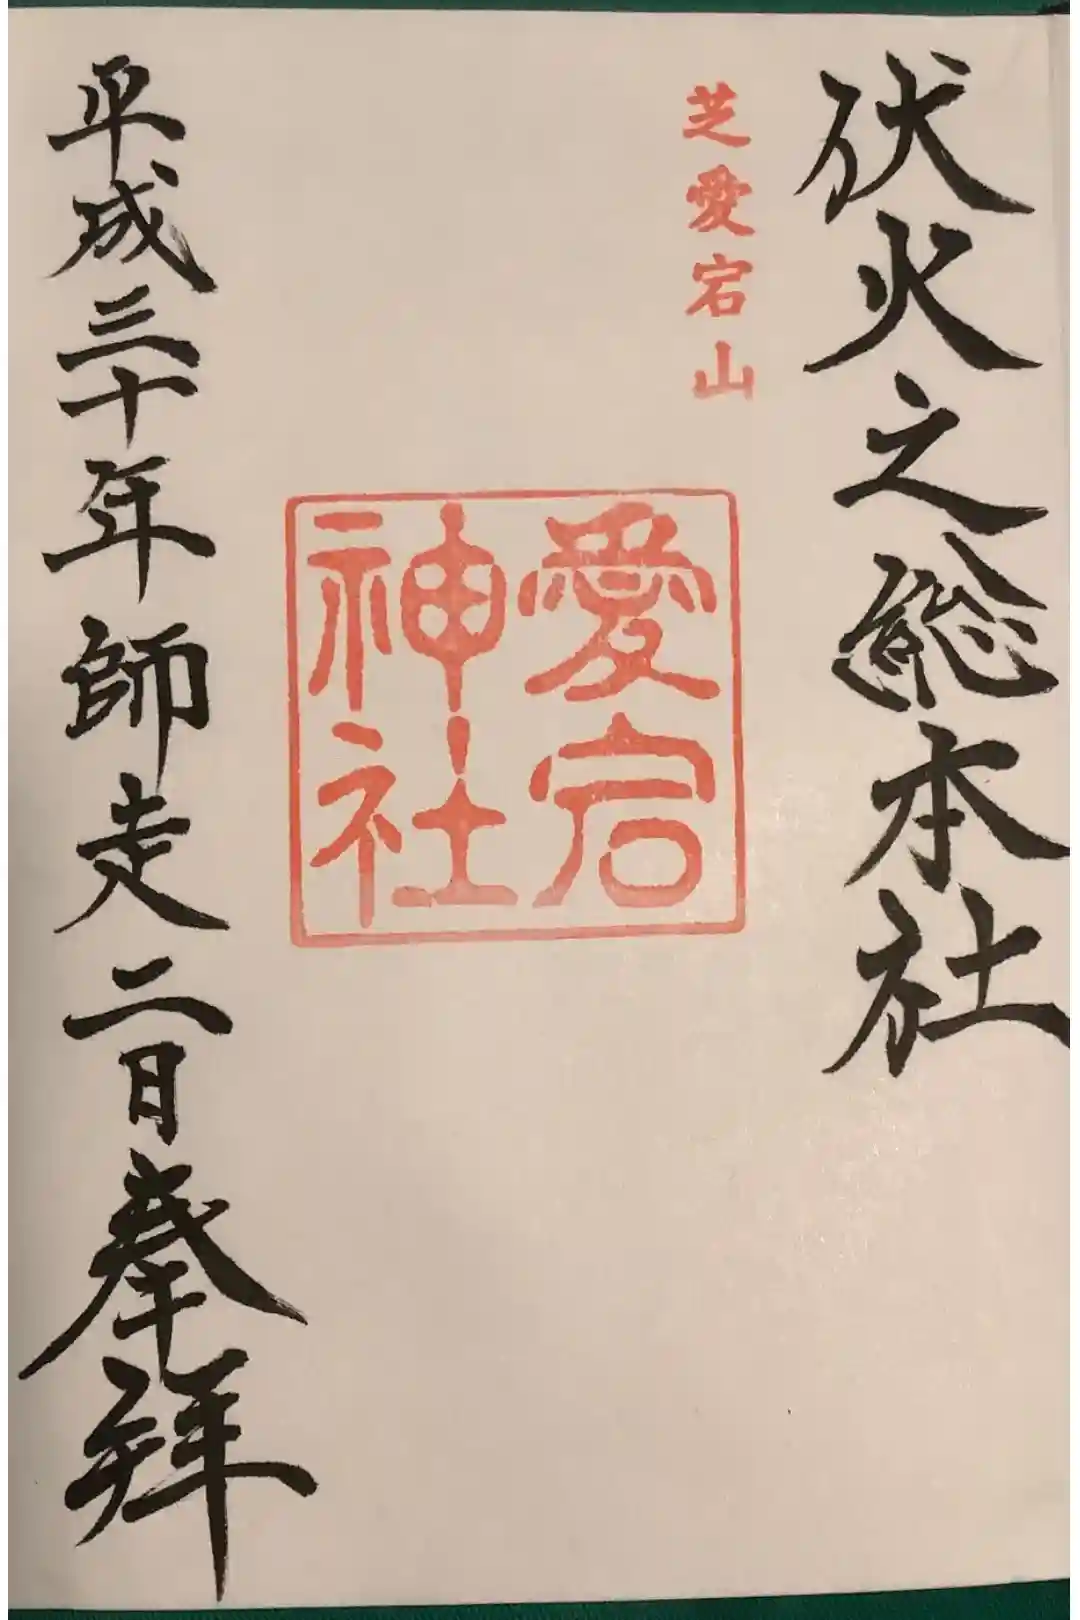 伏火之総本社
芝愛宕山
愛宕
神社
平成三十年師走二日奉拜